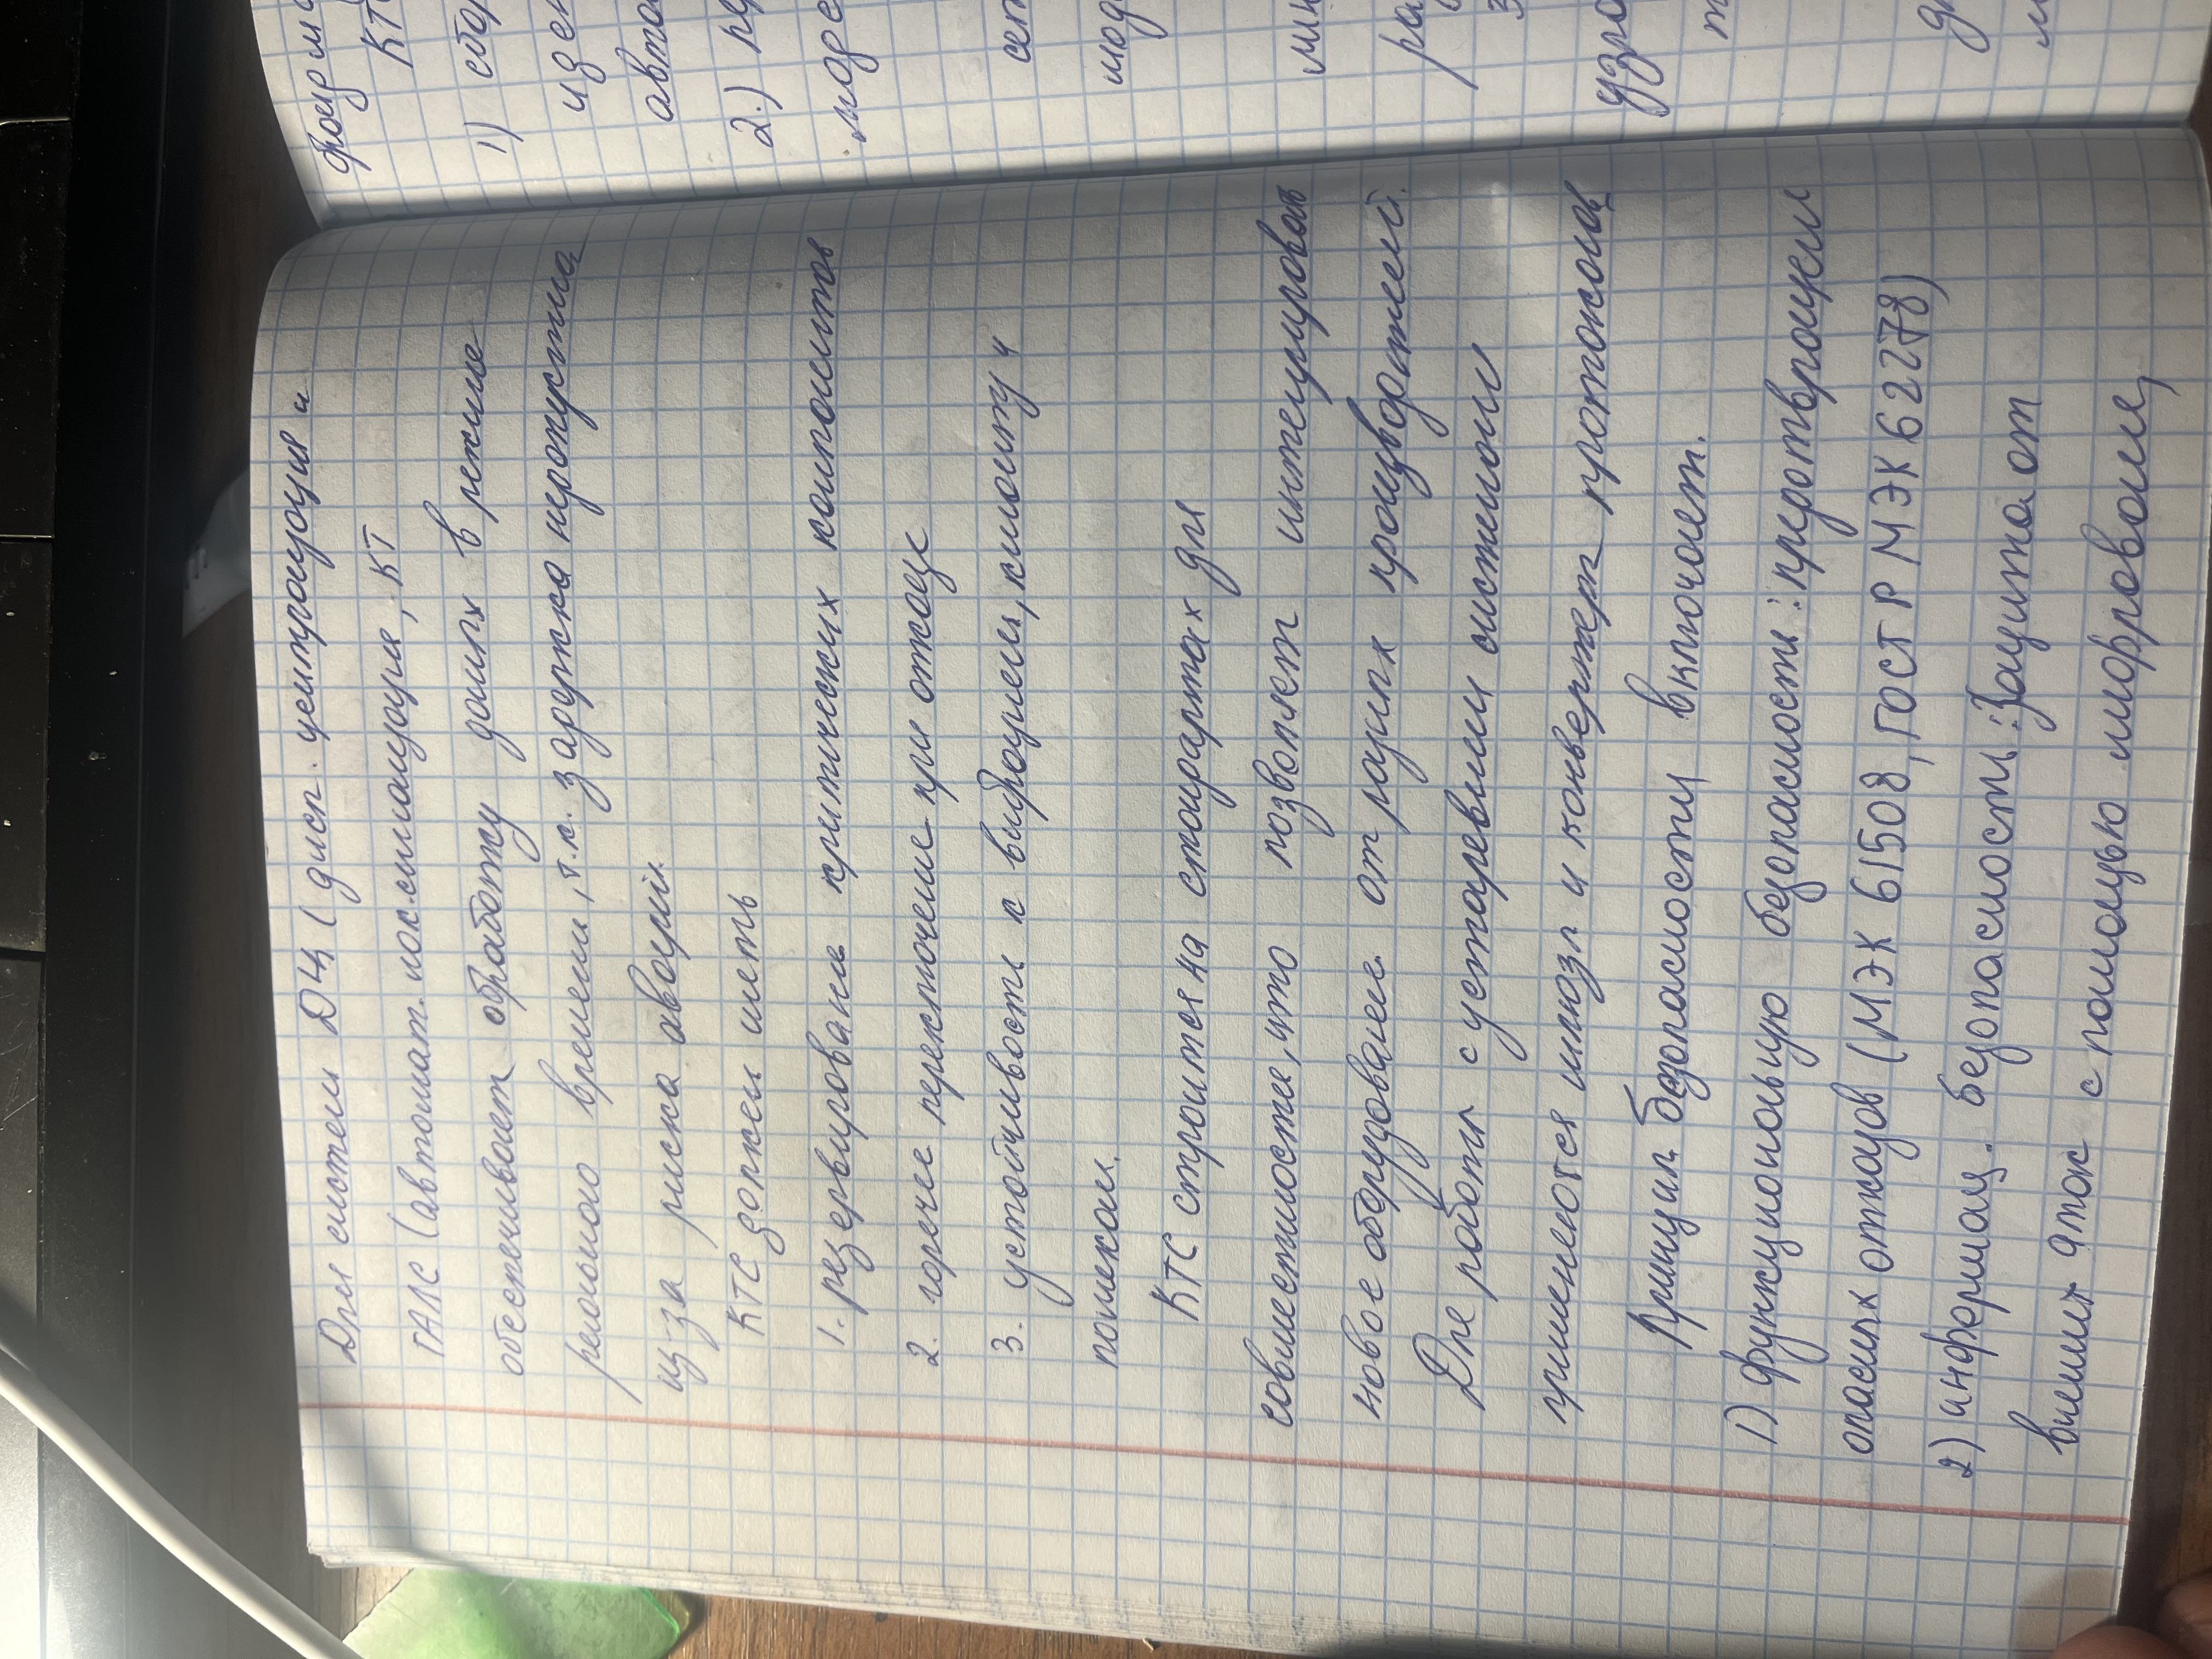 Для систем ДЦ (дисп. централизация и
ГАЛС (автомат. лок. сигнализация, КТ
обеспечивает обработку даных в режиме
реального времени, т.к. задержка недопустима
из-за риска аварий.
КТС должен иметь
1. резервирование критических компонентов
2. горячее переключение при отказе
3. устойчивость к вибрациям, климату и
помехам.
КТС строится на стандартах для
совместимости, что позволяет интегрировать
новое оборудование от разных производителей.
Для работы с устаревшими системами
применяются шлюзы и конвертер протоколов
Принцип безопасности включает.
1) функциональную безопасность: предотвращен
опасных отказов (МЭК 61508, ГОСТ Р МЭК 62278)
2) информац. безопасность: Защита от
внешних атак с помощью шифрования,
КТ
1) сбор
2.)